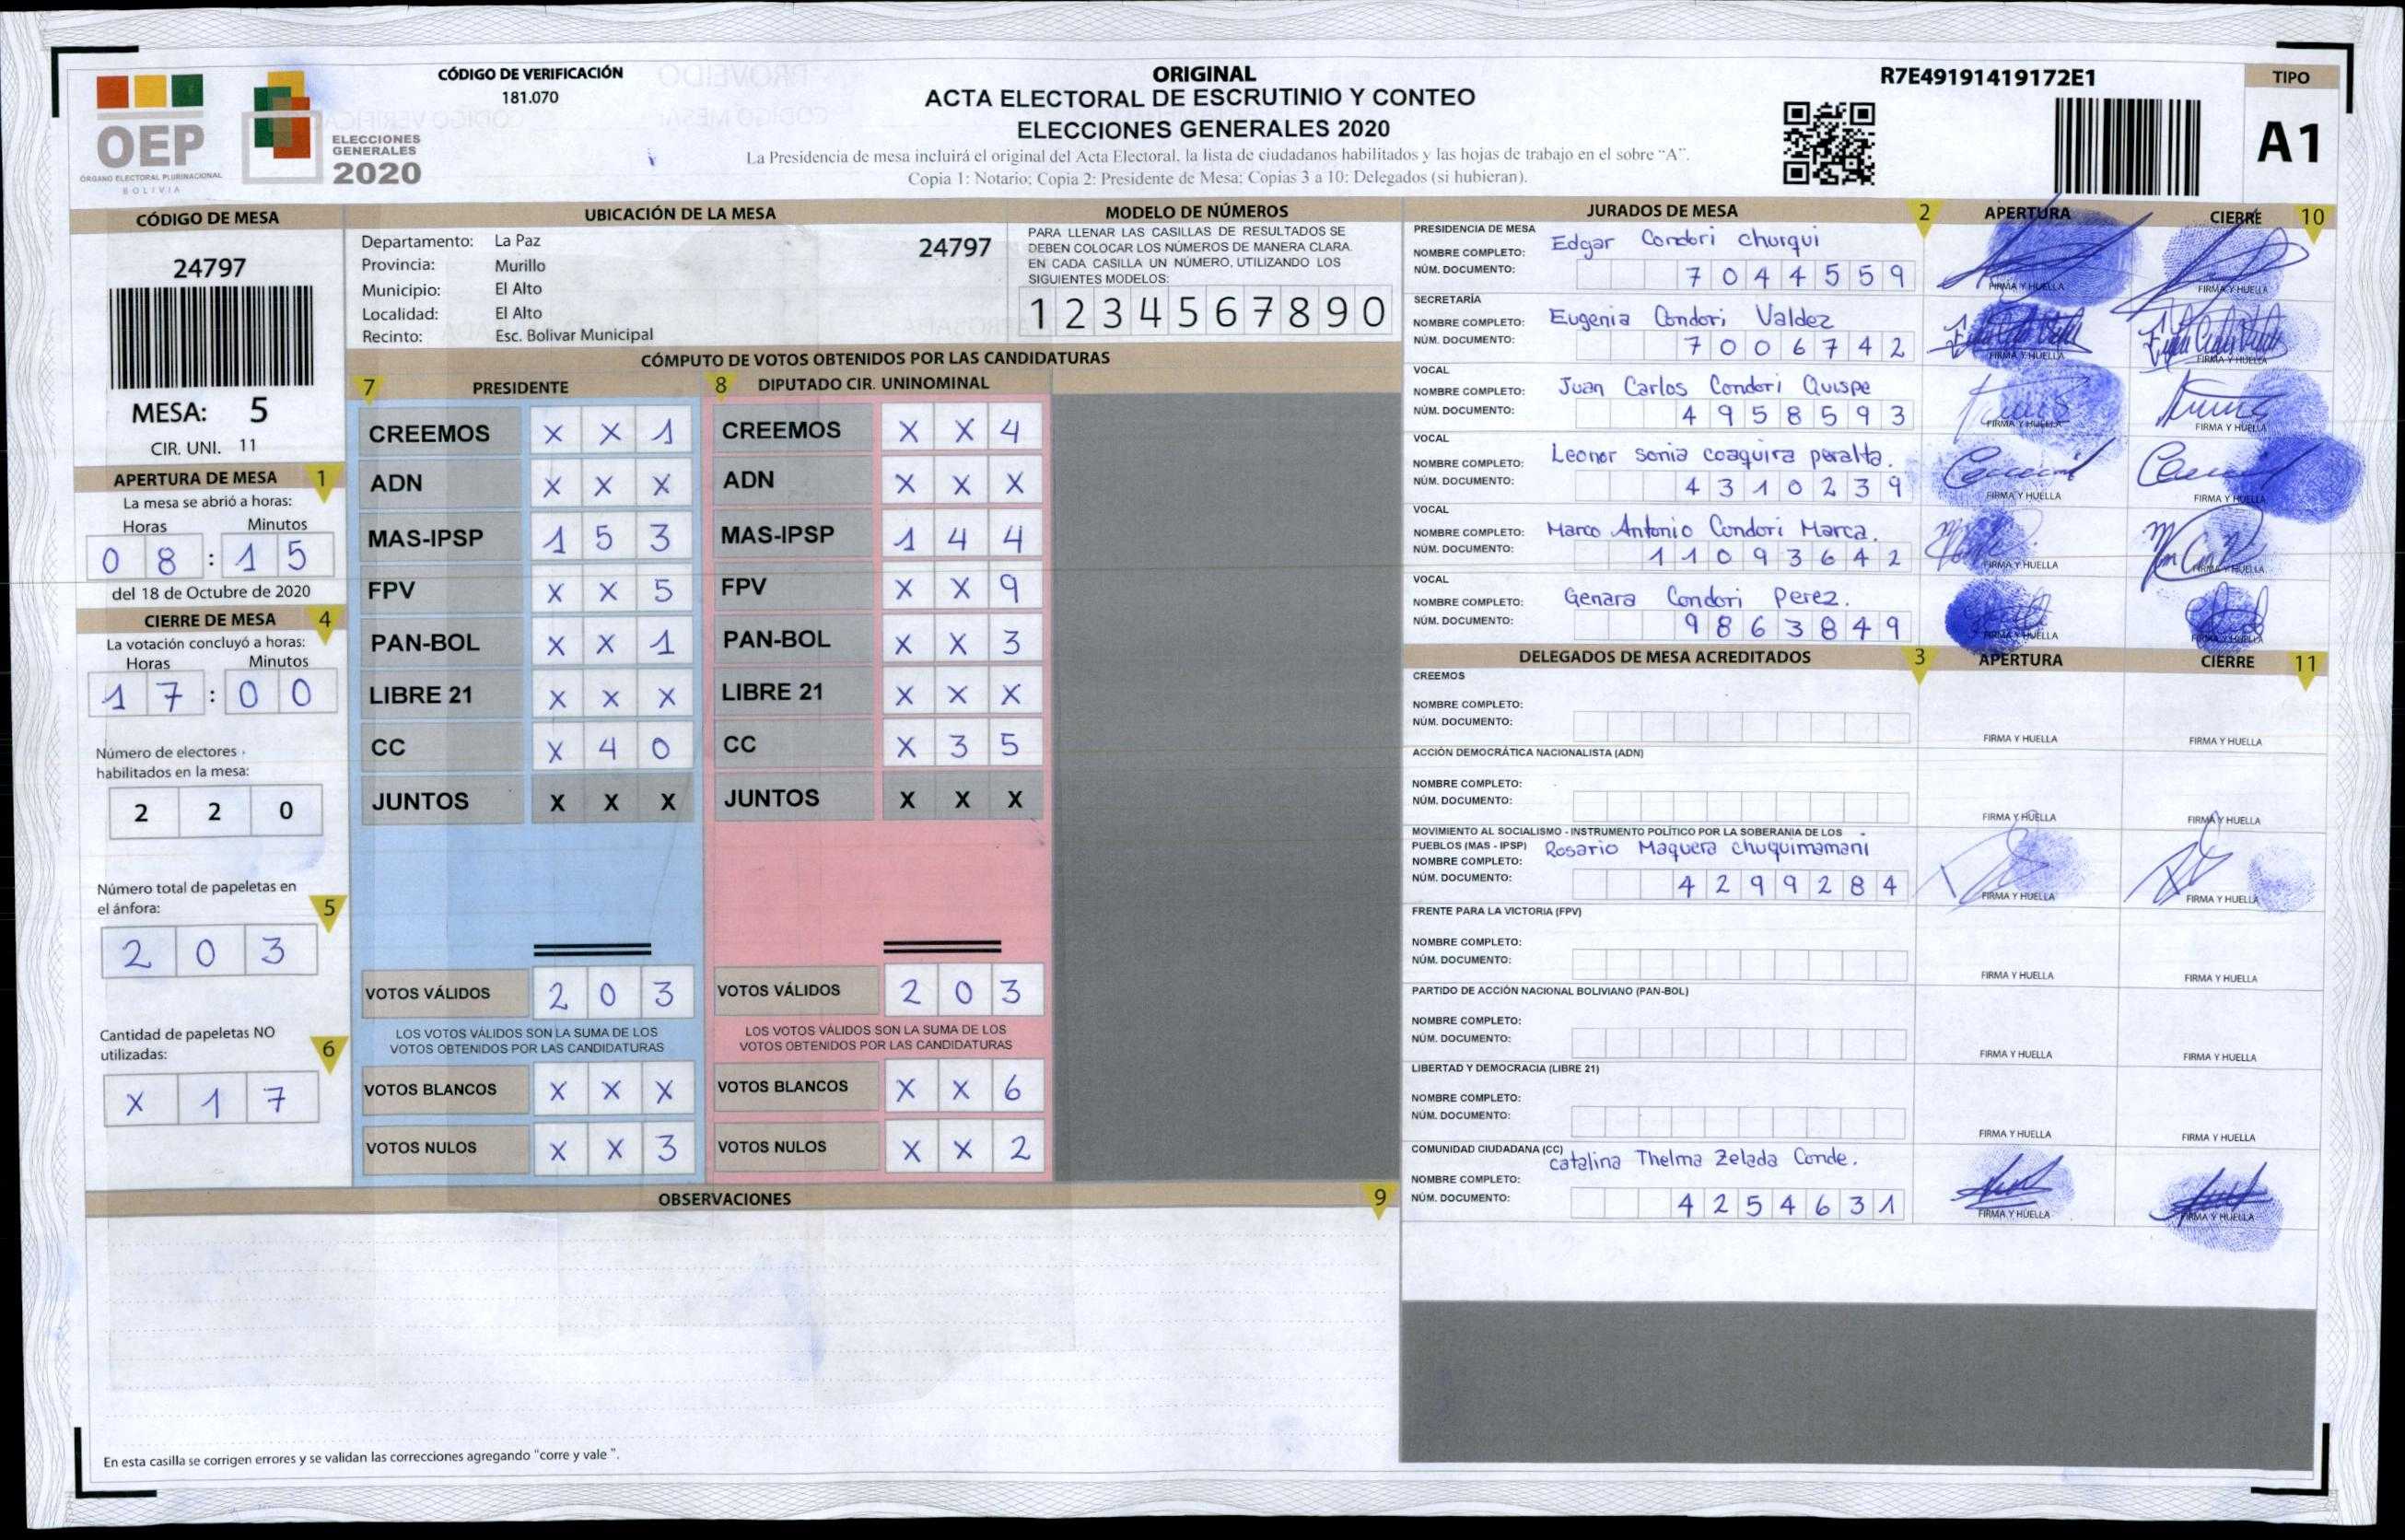 OEP
ÓRGANO ELECTORAL PLURINACIONAL
BOLIVIA
ELECCIONES
GENERALES
2020
CÓDIGO DE VERIFICACIÓN
181.070
ORIGINAL
ACTA ELECTORAL DE ESCRUTINIO Y CONTEO
ELECCIONES GENERALES 2020
La Presidencia de mesa incluirá el original del Acta Electoral, la lista de ciudadanos habilitados y las hojas de trabajo en el sobre “A”.
Copia 1: Notario; Copia 2: Presidente de Mesa; Copias 3 a 10: Delegados (si hubieran).
R7E49191419172E1
TIPO
A1
CÓDIGO DE MESA
24797
MESA: 5
CIR. UNI. 11
APERTURA DE MESA 1
La mesa se abrió a horas:
Horas Minutos
0 8 : 1 5
del 18 de Octubre de 2020
CIERRE DE MESA 4
La votación concluyó a horas:
Horas Minutos
1 7 : 0 0
Número de electores
habilitados en la mesa:
2 2 0
Número total de papeletas en
el ánfora: 5
2 0 3
Cantidad de papeletas NO
utilizadas: 6
X 1 7
UBICACIÓN DE LA MESA
Departamento: La Paz
24797
Provincia: Murillo
Municipio: El Alto
Localidad: El Alto
Recinto: Esc. Bolivar Municipal
MODELO DE NÚMEROS
PARA LLENAR LAS CASILLAS DE RESULTADOS SE
DEBEN COLOCAR LOS NÚMEROS DE MANERA CLARA.
EN CADA CASILLA UN NÚMERO, UTILIZANDO LOS
SIGUIENTES MODELOS:
1 2 3 4 5 6 7 8 9 0
CÓMPUTO DE VOTOS OBTENIDOS POR LAS CANDIDATURAS
7 PRESIDENTE
CREEMOS X X 1
ADN X X X
MAS-IPSP 1 5 3
FPV X X 5
PAN-BOL X X 1
LIBRE 21 X X X
CC X 4 0
JUNTOS X X X
VOTOS VÁLIDOS 2 0 3
LOS VOTOS VÁLIDOS SON LA SUMA DE LOS
VOTOS OBTENIDOS POR LAS CANDIDATURAS
VOTOS BLANCOS X X X
VOTOS NULOS X X 3
8 DIPUTADO CIR. UNINOMINAL
CREEMOS X X 4
ADN X X X
MAS-IPSP 1 4 4
FPV X X 9
PAN-BOL X X 3
LIBRE 21 X X X
CC X 3 5
JUNTOS X X X
VOTOS VÁLIDOS 2 0 3
LOS VOTOS VÁLIDOS SON LA SUMA DE LOS
VOTOS OBTENIDOS POR LAS CANDIDATURAS
VOTOS BLANCOS X X 6
VOTOS NULOS X X 2
OBSERVACIONES 9
En esta casilla se corrigen errores y se validan las correcciones agregando “corre y vale ”.
JURADOS DE MESA 2 APERTURA CIERRE 10
PRESIDENCIA DE MESA
NOMBRE COMPLETO: Edgar Condori Churqui
NÚM. DOCUMENTO: 7 0 4 4 5 5 9
FIRMA Y HUELLA FIRMA Y HUELLA
SECRETARÍA
NOMBRE COMPLETO: Eugenia Condori Valdez
NÚM. DOCUMENTO: 7 0 0 6 7 4 2
FIRMA Y HUELLA FIRMA Y HUELLA
VOCAL
NOMBRE COMPLETO: Juan Carlos Condori Quispe
NÚM. DOCUMENTO: 4 9 5 8 5 9 3
FIRMA Y HUELLA FIRMA Y HUELLA
VOCAL
NOMBRE COMPLETO: Leonor sonia coaquira peralta.
NÚM. DOCUMENTO: 4 3 1 0 2 3 9
FIRMA Y HUELLA FIRMA Y HUELLA
VOCAL
NOMBRE COMPLETO: Marco Antonio Condori Marca.
NÚM. DOCUMENTO: 1 1 0 9 3 6 4 2
FIRMA Y HUELLA FIRMA Y HUELLA
VOCAL
NOMBRE COMPLETO: Genara Condori Perez.
NÚM. DOCUMENTO: 9 8 6 3 8 4 9
FIRMA Y HUELLA FIRMA Y HUELLA
DELEGADOS DE MESA ACREDITADOS 3 APERTURA CIERRE 11
CREEMOS
NOMBRE COMPLETO:
NÚM. DOCUMENTO:
FIRMA Y HUELLA FIRMA Y HUELLA
ACCIÓN DEMOCRÁTICA NACIONALISTA (ADN)
NOMBRE COMPLETO:
NÚM. DOCUMENTO:
FIRMA Y HUELLA FIRMA Y HUELLA
MOVIMIENTO AL SOCIALISMO - INSTRUMENTO POLÍTICO POR LA SOBERANIA DE LOS
PUEBLOS (MAS - IPSP) Rosario Maquera Chuquimamani
NOMBRE COMPLETO:
NÚM. DOCUMENTO: 4 2 9 9 2 8 4
FIRMA Y HUELLA FIRMA Y HUELLA
FRENTE PARA LA VICTORIA (FPV)
NOMBRE COMPLETO:
NÚM. DOCUMENTO:
FIRMA Y HUELLA FIRMA Y HUELLA
PARTIDO DE ACCIÓN NACIONAL BOLIVIANO (PAN-BOL)
NOMBRE COMPLETO:
NÚM. DOCUMENTO:
FIRMA Y HUELLA FIRMA Y HUELLA
LIBERTAD Y DEMOCRACIA (LIBRE 21)
NOMBRE COMPLETO:
NÚM. DOCUMENTO:
FIRMA Y HUELLA FIRMA Y HUELLA
COMUNIDAD CIUDADANA (CC)
Catalina Thelma Zelada Conde.
NOMBRE COMPLETO:
NÚM. DOCUMENTO: 4 2 5 4 6 3 1
FIRMA Y HUELLA FIRMA Y HUELLA